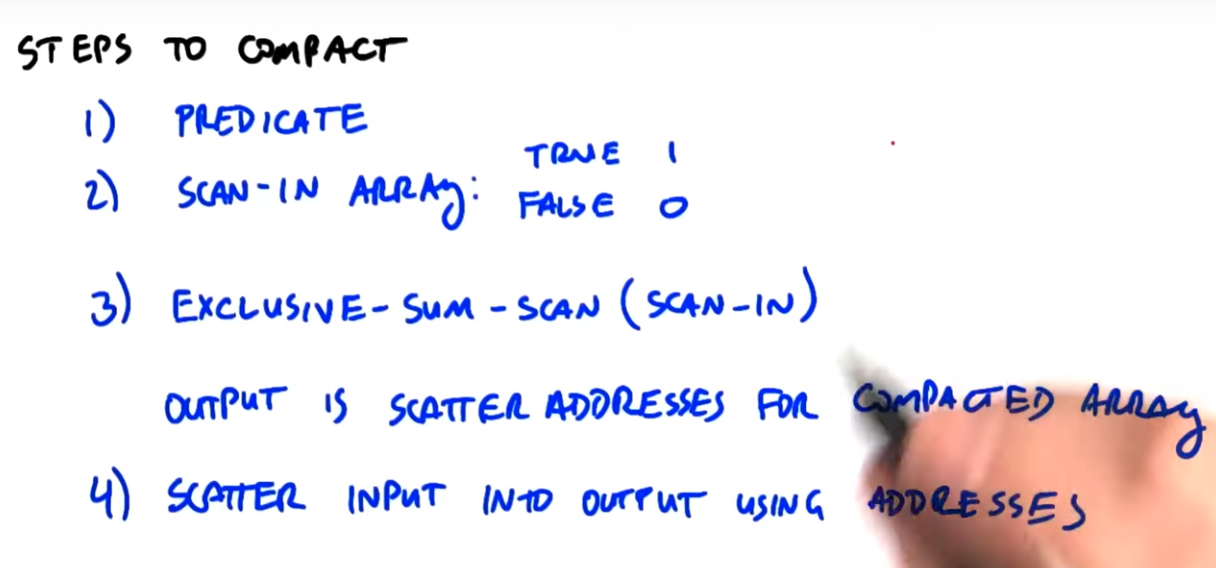 STEPS TO COMPACT
1) PREDICATE
2) SCAN-IN ARRAY: TRUE 1
FALSE 0
3) EXCLUSIVE-SUM-SCAN (SCAN-IN)
OUTPUT IS SCATTER ADDRESSES FOR COMPACTED ARRAY
4) SCATTER INPUT INTO OUTPUT USING ADDRESSES